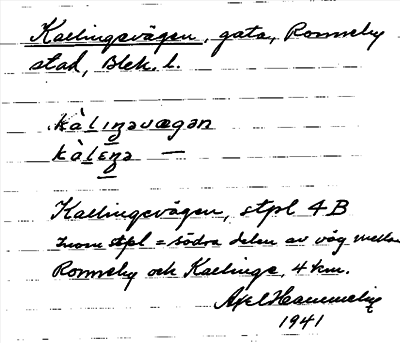 Kaellingevägen, gata, Ronneby
stad, Blek. l.
kàlıŋəvægən
kàlɛŋə —
Kallingevägen, stpl 4B
Inom stpl = södra delen av väg mellan
Ronneby och Kallinge, 4 km.
Axel Hammelin
1941